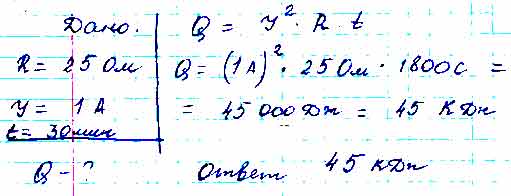 Дано.
R = 25 Ом
У = 1 А
t = 30 мин
Q - ?
Q = У² · R t
Q = (1 А)² · 25 Ом · 1800 с =
= 45 000 Дж = 45 КДж
Ответ 45 КДж